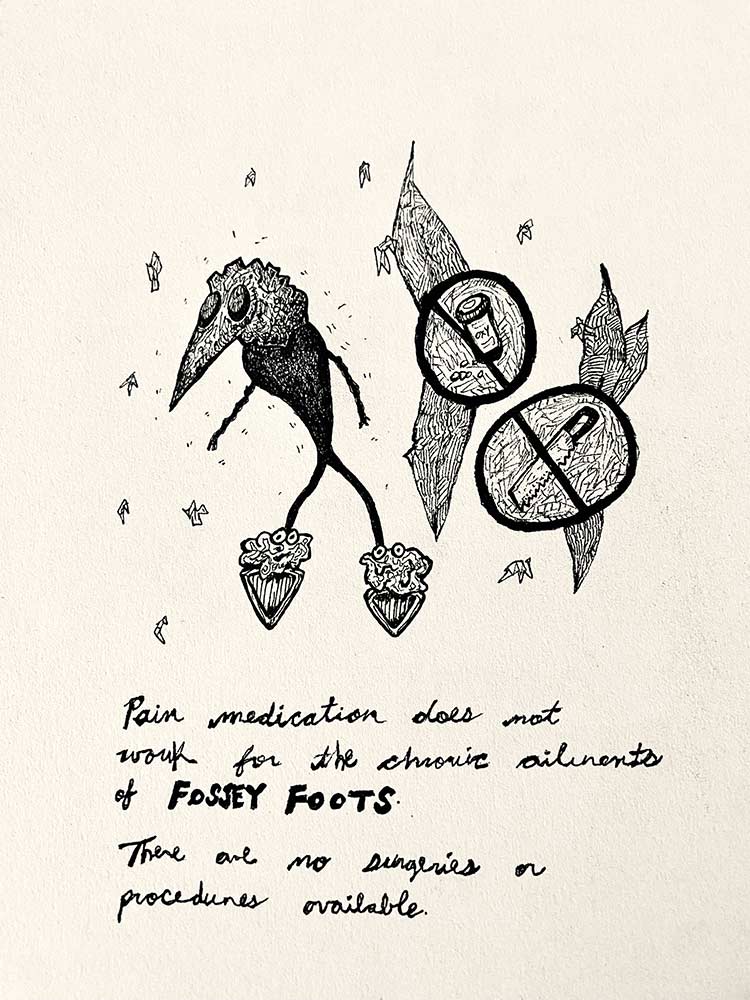 OXY
Pain medication does not
work for the chronic ailments
of FOSSEY FOOTS.
There are no surgeries or
procedures available.